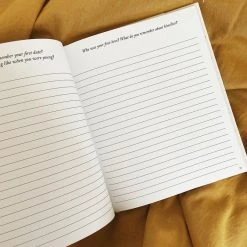 member your first date?
like when you were young?
Who was your first love? What do you remember about